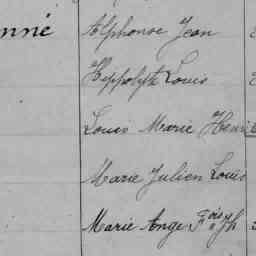 nné Alphonse Jean
Hippolyte Louis
Louis Marie Henri
Marie Julien Louis
Marie Ange Fois Jh